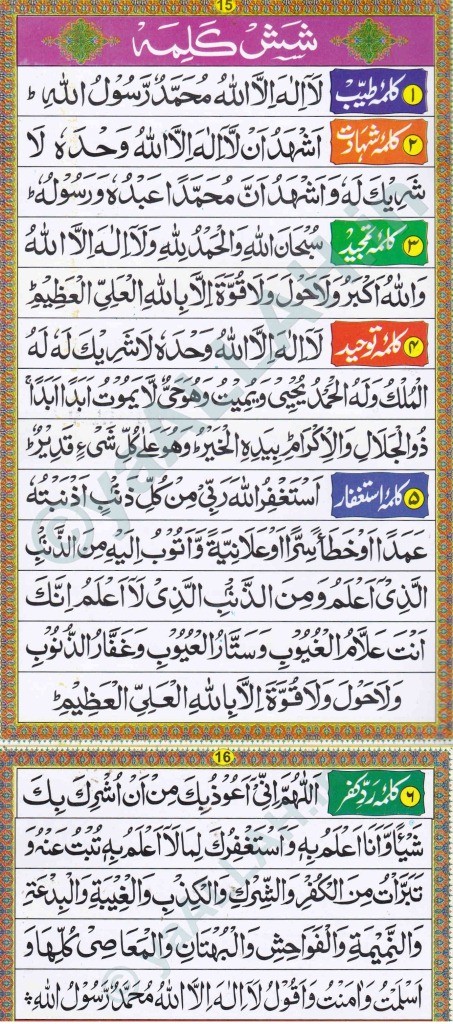 15
شش کلمہ
۱ کلمۂ طیّب لَآ اِلٰهَ اِلَّا اللهُ مُحَمَّدٌ رَّسُوْلُ اللهِ ؕ
۲ کلمۂ شہادت اَشْهَدُ اَنْ لَّآ اِلٰهَ اِلَّا اللهُ وَحْدَهٗ لَا
شَرِيْكَ لَهٗ وَاَشْهَدُ اَنَّ مُحَمَّدًا عَبْدُهٗ وَرَسُوْلُهٗ ؕ
۳ کلمۂ تمجید سُبْحَانَ اللهِ وَالْحَمْدُ لِلّٰهِ وَلَآ اِلٰهَ اِلَّا اللهُ
وَاللهُ اَكْبَرُ وَلَا حَوْلَ وَلَا قُوَّةَ اِلَّا بِاللهِ الْعَلِيِّ الْعَظِيْمِ ؕ
۴ کلمۂ توحید لَآ اِلٰهَ اِلَّا اللهُ وَحْدَهٗ لَا شَرِيْكَ لَهٗ لَهُ
الْمُلْكُ وَلَهُ الْحَمْدُ يُحْيٖى وَيُمِيْتُ وَهُوَحَيٌّ لَّا يَمُوْتُ اَبَدًا اَبَدًا ؕ
ذُو الْجَلَالِ وَالْاِكْرَامِ ؕ بِيَدِهِ الْخَيْرُ ؕ وَهُوَ عَلٰى كُلِّ شَیْءٍ قَدِيْرٌ ؕ
۵ کلمۂ استغفار اَسْتَغْفِرُ اللهَ رَبِّيْ مِنْ كُلِّ ذَنْۢبٍ اَذْنَبْتُهٗ
عَمَدًا اَوْ خَطَأً سِرًّا اَوْ عَلَانِيَةً وَّاَتُوْبُ اِلَيْهِ مِنَ الذَّنْۢبِ
الَّذِيْٓ اَعْلَمُ وَمِنَ الذَّنْۢبِ الَّذِيْ لَآ اَعْلَمُ اِنَّكَ
اَنْتَ عَلَّامُ الْغُيُوْبِ وَسَتَّارُ الْعُيُوْبِ وَغَفَّارُ الذُّنُوْبِ
وَلَا حَوْلَ وَلَا قُوَّةَ اِلَّا بِاللهِ الْعَلِيِّ الْعَظِيْمِ ؕ
16
۶ کلمۂ ردِّ کفر اَللّٰهُمَّ اِنِّيْٓ اَعُوْذُ بِكَ مِنْ اَنْ اُشْرِكَ بِكَ
شَيْئًا وَّاَنَا اَعْلَمُ بِهٖ وَاَسْتَغْفِرُكَ لِمَا لَآ اَعْلَمُ بِهٖ تُبْتُ عَنْهُ وَ
تَبَرَّأْتُ مِنَ الْكُفْرِ وَالشِّرْكِ وَالْكِذْبِ وَالْغِيْبَةِ وَالْبِدْعَةِ
وَالنَّمِيْمَةِ وَالْفَوَاحِشِ وَالْبُهْتَانِ وَالْمَعَاصِيْ كُلِّهَا وَ
اَسْلَمْتُ وَاٰمَنْتُ وَاَقُوْلُ لَآ اِلٰهَ اِلَّا اللهُ مُحَمَّدٌ رَّسُوْلُ اللهِ
© yaALLAH.in
© yaALLAH.in